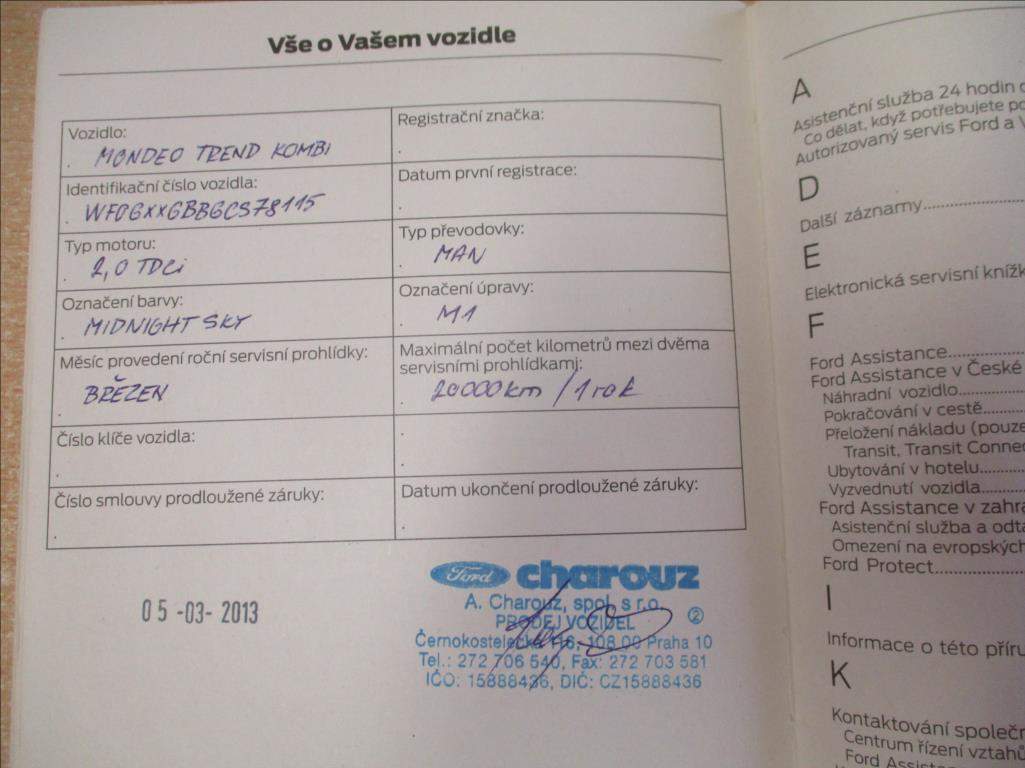 Vše o Vašem vozidle
Vozidlo:
MONDEO TREND KOMBI
Registrační značka:
Identifikační číslo vozidla:
WF0GXXGBBGCS78115
Datum první registrace:
Typ motoru:
2,0 TDCi
Typ převodovky:
MAN
Označení barvy:
MIDNIGHT SKY
Označení úpravy:
M1
Měsíc provedení roční servisní prohlídky:
BŘEZEN
Maximální počet kilometrů mezi dvěma
servisními prohlídkami:
20000km / 1 rok
Číslo klíče vozidla:
Číslo smlouvy prodloužené záruky:
Datum ukončení prodloužené záruky:
05 -03- 2013
Ford charouz
A. Charouz, spol. s r.o.
PRODEJ VOZIDEL 2
Černokostelecká 116, 108 00 Praha 10
Tel.: 272 706 540, Fax: 272 703 581
IČO: 15888436, DIČ: CZ15888436
A
Asistenční služba 24 hodin
Co dělat, když potřebujete
Autorizovaný servis Ford a
D
Další záznamy
E
Elektronická servisní
F
Ford Assistance
Ford Assistance v České
Náhradní vozidlo
Pokračování v cestě
Přeložení nákladu
Transit, Transit
Ubytování v hotelu
Vyzvednutí vozidla
Ford Assistance v
Asistenční služba a
Omezení na
Ford Protect
I
Informace o této
K
Kontaktování
Centrum řízení
Ford